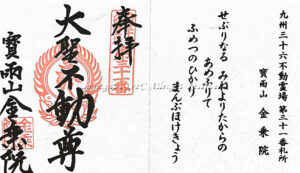 九州三十六不動霊場 第三十一番札所
寳雨山 金乗院
せぶりなる みねよりたからの
あめふりて
ふめつのひかり
まんぶほけきょう
奉拝
大聖不動尊
寳雨山金乗院